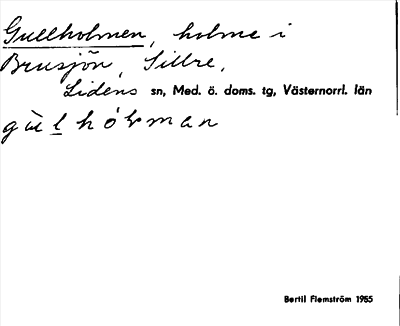 Gullholmen, holme i
Brusjön, Sillre,
Lidens sn, Med. ö. doms. tg, Västernorrl. län
gùl hólman
Bertil Flemström 1965